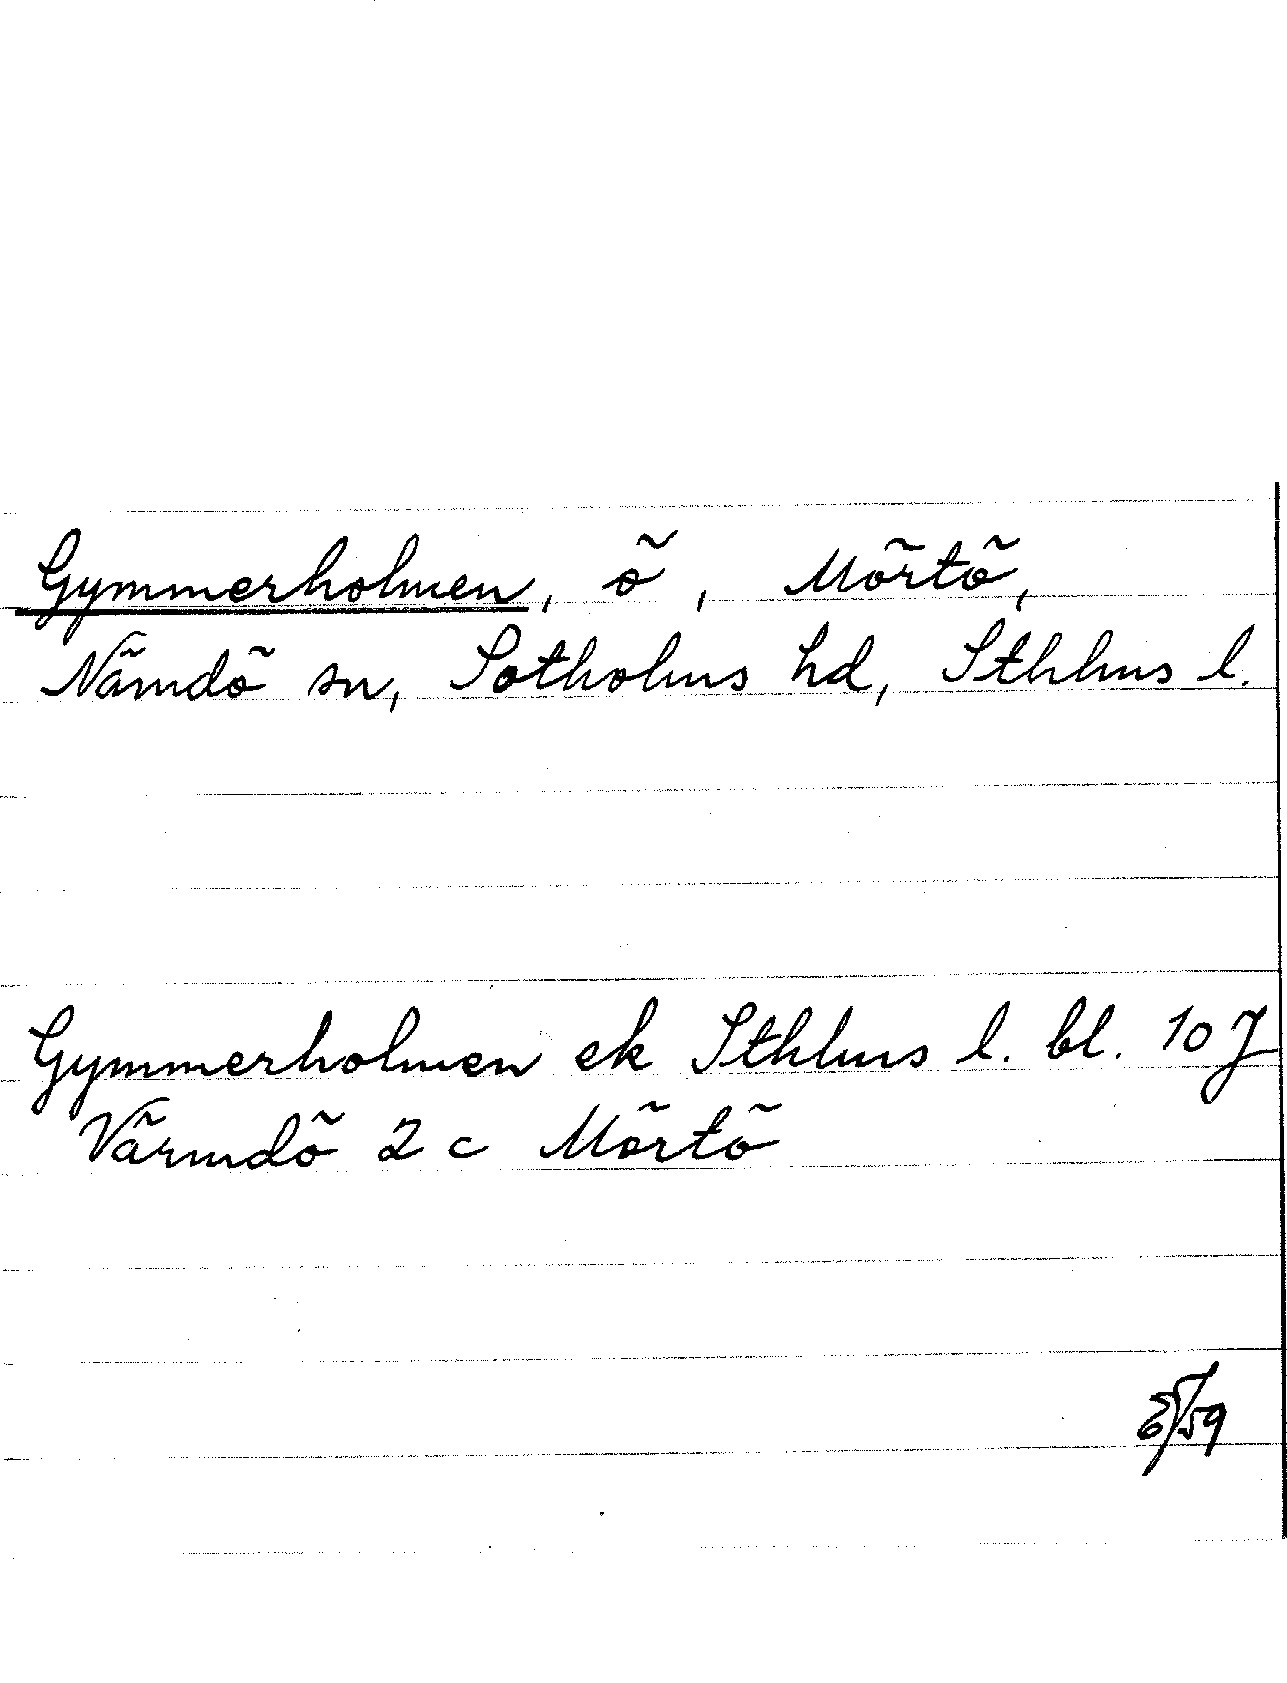 Gymmerholmen, ö, Mörtö,
Nämdö sn, Sotholms hd, Sthlms l.
Gymmerholmen ek Sthlms l. bl. 10 J
Värmdö 2 c Mörtö